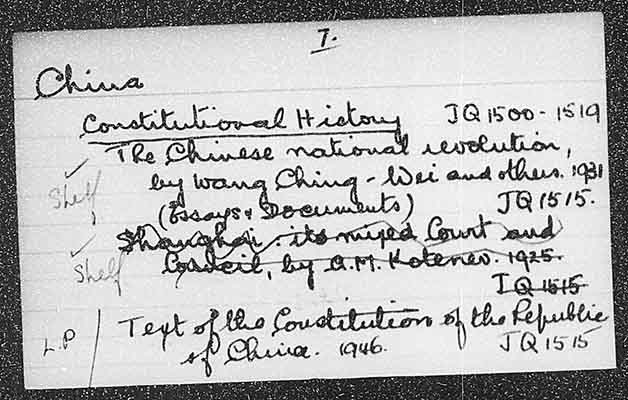 7.
China
Constitutional History JQ 1500 - 1519
✓ The Chinese national revolution,
Shelf by Wang Ching-Wei and others. 1931
(Essays & Documents) JQ 1515.
✓ Shanghai: its mixed Court and
Shelf Council, by A.M. Kotenev. 1925.
JQ 1515
L.P / Text of the Constitution of the Republic
of China. 1946. JQ 1515